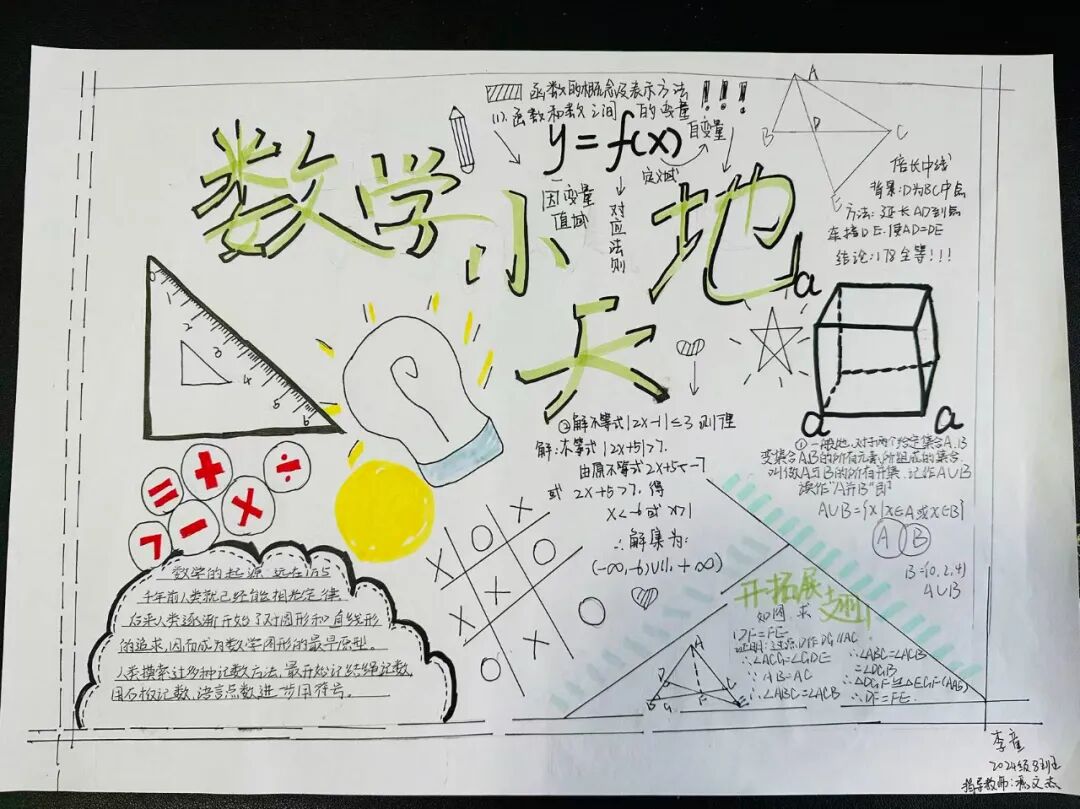 数学小天地
函数的概念及表示方法!!!
(1).函数和数之间 的变量
y=f(x)
自变量
定义域
因变量
值域
对应法则
A
B
D
C
E
倍长中线
背景:D为BC中点
方法:延长AD到点
连接DE.使AD=DE
结论:178全等!!!
0
1
2
3
4
5
6
a
a
a
②解不等式|2x-1|≤3
解:不等式|2x+5|>7.
由原不等式2x+5<-7
或 2x+5>7.得
x<-6或x>1
∴解集为:
(-∞,-6)∪(1,+∞)
①一般地,对于两个给定集合A.B
变集合A.B的所有元素,所组成的集合.
叫做A与B的所有并集.记作A∪B
读作"A并B"即
A∪B={x|x∈A或x∈B}
A B
B={0,2,4}
A∪B
= + ÷
> − ×
X
O
O
X
X
O
X
O
X
O
数学的起源 远在1万5
千年前人类就已经能相光定律
后来人类逐渐开始了对图形和直线形
的追求,因而成为数学图形的最早原型.
人类摸索过多种记数方法,最开始记结绳记数,
用石板记数,语言点数进一步用符号。
开拓展
如图.求
DF=FE
证明:过点D作DG//AC
∴∠ACG=∠GDE
∵AB=AC
∴∠ABC=∠ACB
∴∠ABC=∠ACB
=∠DGB
∴△DGF≌△ECF(AAS)
∴DF=FE.
A
D
B
G
F
C
E
2024级8班
指导教师: